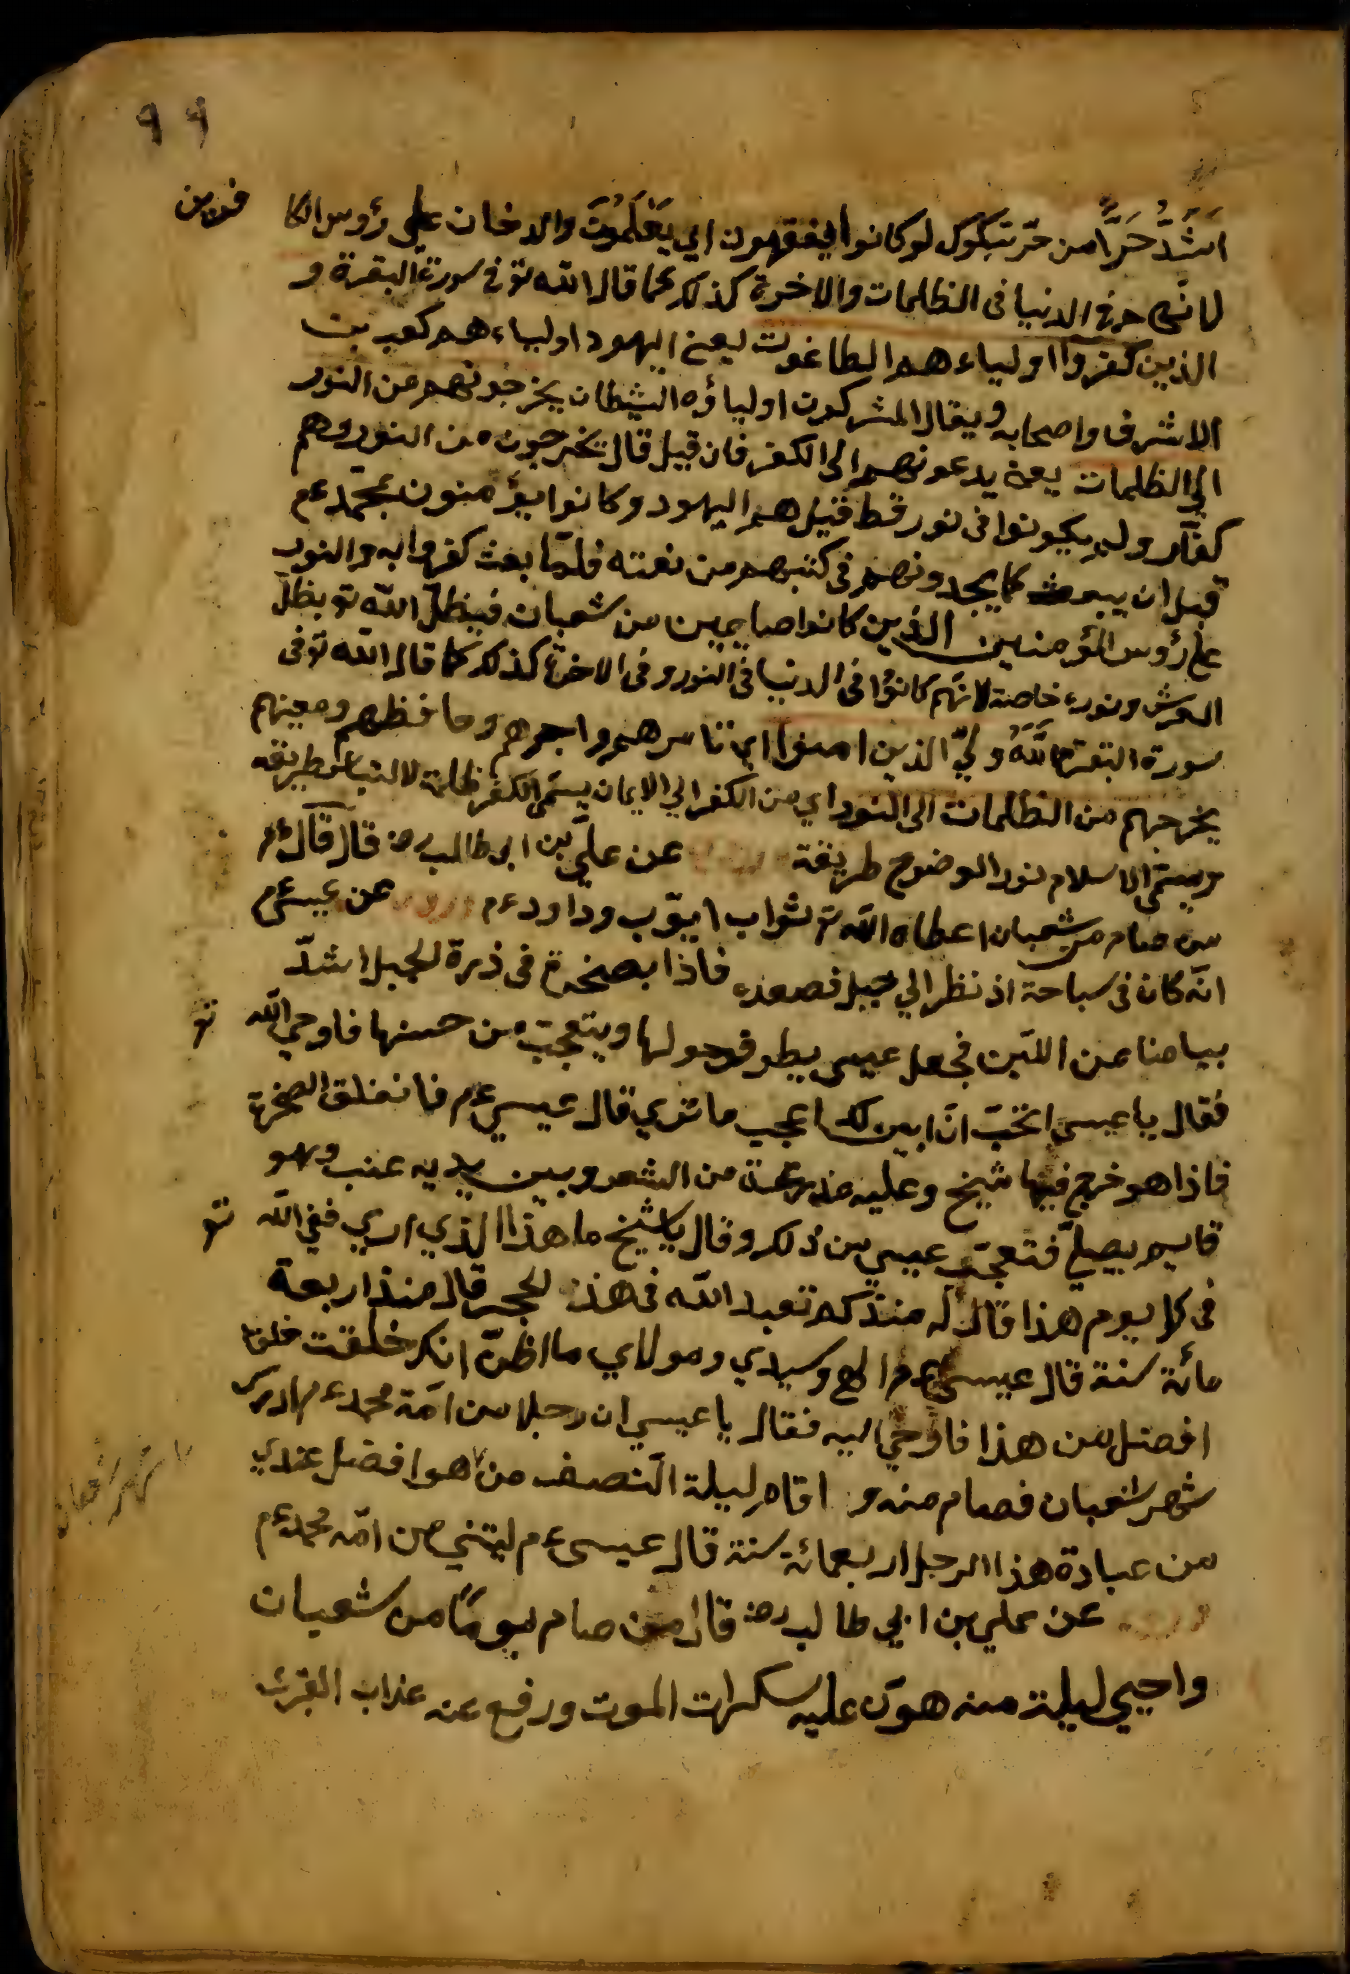 ٩٩
اشدّ حرّا من حرّ تبكوك لو كانوا يفقهون اي يَعْلَمُونَ والدخان علي رؤوس الكا فرين
لانهم في الدنيا في الظلمات والاخرة كذلك كما قال الله تع في سورة البقرة و
الذين كفروا اولياءهم الطاغوت يعني اليهود اولياءهم كعب بن
الاشرف واصحابه ويقال المشركون اولياؤه الشيطان يخرجونهم من النور
الي الظلمات يعني يدعونهم الي الكفر فان قيل قال يخرجون من النور وهم
كفّار ولم يكونوا في نور قط قيل هم اليهود وكانوا يؤمنون بمحمّد عم
قبل ان يبعث كما يجدونهم في كتبهم من نعته فلمّا بعث كفروا به والنور
علي رؤوس المؤمنين الذين كانوا صايمين من شعبان فيظلّ الله تع بظلّ
العرش ونوره خاصة لانهم كانوا في الدنيا في النور وفي الاخرة كذلك كما قال الله تع في
سورة البقرة اللّه وليّ الذين امنوا اي ناصرهم واجرهم وحافظهم ومعينهم
يخرجهم من الظلمات الي النور اي من الكفر الي الايمان يسمّي الكفر ظلمة لالتباس طريقه
ويسمّي الاسلام نورا لوضوح طريقة عن عليّ بن ابي طالب رض قال قال عم
من صام من شعبان اعطاه الله تع ثواب ايوّب وداود عم عن عيسي عم
انّه كان في سياحة اذ نظر الي جبل فصعده فاذا بصخرة في ذروة الجبل اشدّ
بياضا من اللّبن فجعل عيسي يطوف حولها ويتعجّب من حسنها فاوحي اللّه تع
فقال يا عيسي اتحبّ انّ ابين لك اعجب ما تري قال عيسي عم فانفلق الصخرة
فاذا هو خرج فيها شيخ وعليه مدرعة من الشعر وبين يديه عنب وهو
قايم يصلّي فتعجّب عيسي من ذلك وقال يا شيخ ما هذا الذي اري ففي اللّه تع
في كل يوم هذا قال له منذ كم تعبد الله في هذه الحجر قال منذ اربعة
مائة سنة قال عيسي عم الهي وسيدي ومولاي ما اظنّ انك خلقت خلقا
افضل من هذا فاوحي اليه فقال يا عيسي ان رجلا من امّة محمد عم ادرك
شهر شعبان فصام منه و اقام ليلة النصف منه هو افضل عندي
من عبادة هذا الرجل اربعمائة سنة قال عيسي عم ليتني من امّة محمد عم
عن علي بن ابي طالب رض قال من صام يومًا من شعبان
واحيي ليلة منه هوّن عليه سكرات الموت ورفع عنه عذاب القبر